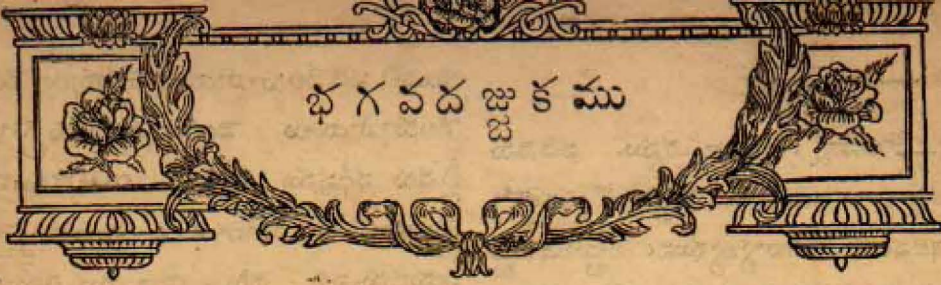 భగవదజ్జుకము